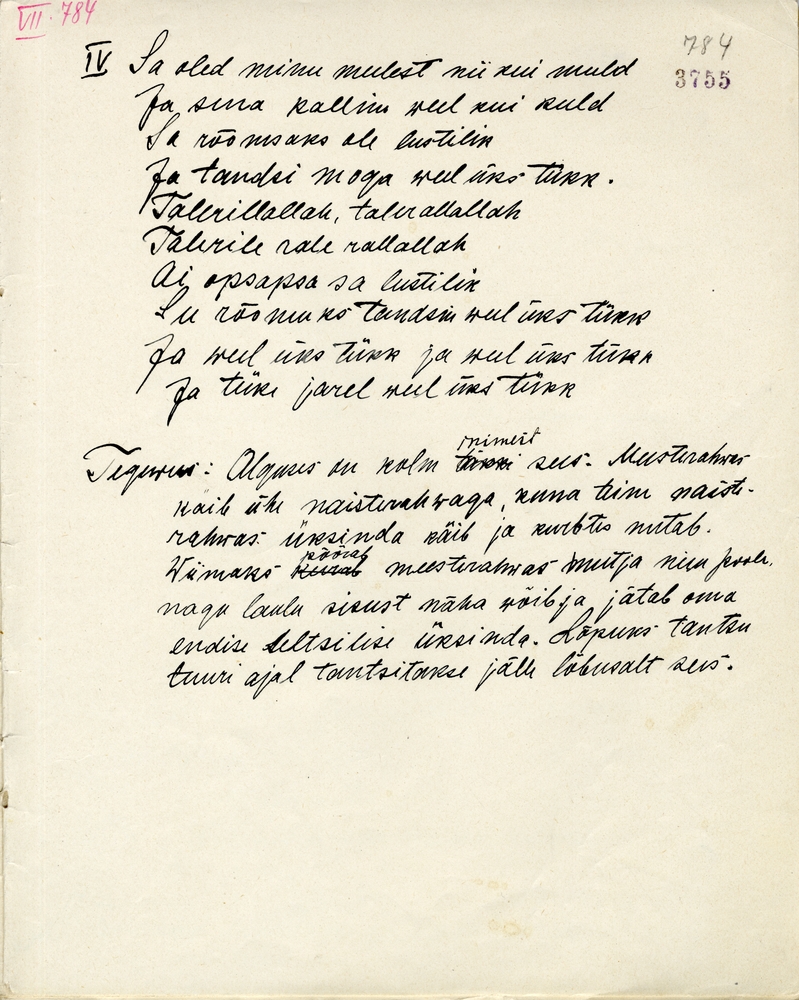 VII. 784
784
3755
IV Sa oled minu meelest nii kui muld
Ja sina kallim weel kui kuld
Sa rõõmsaks ole lustilik
Ja tandsi moga weel üks tükk.
Talerillallah, talerallallah
Talerile rale rallallah
Ai opsapsa sa lustilik
Su rõõmuks tandsin weel üks tükk
Ja weel üks tükk ja weel üks tükk
Ja tüki jarel weel üks tükk
Tegewus: Alguses on kolm tükki inimest sees. Meesterahwas
käib ühe naisterahwaga, kuna teine naiste-
rahwas üksinda käib ja kurbtes nutab.
Wiimaks pöörab meesterahwas nutja neiu poole,
nagu laulu sisust näha wõib, ja jätab oma
endise seltsilise üksinda. Lõpuks tantsu
tuuri ajal tantsitakse jälle lõbusalt sees.